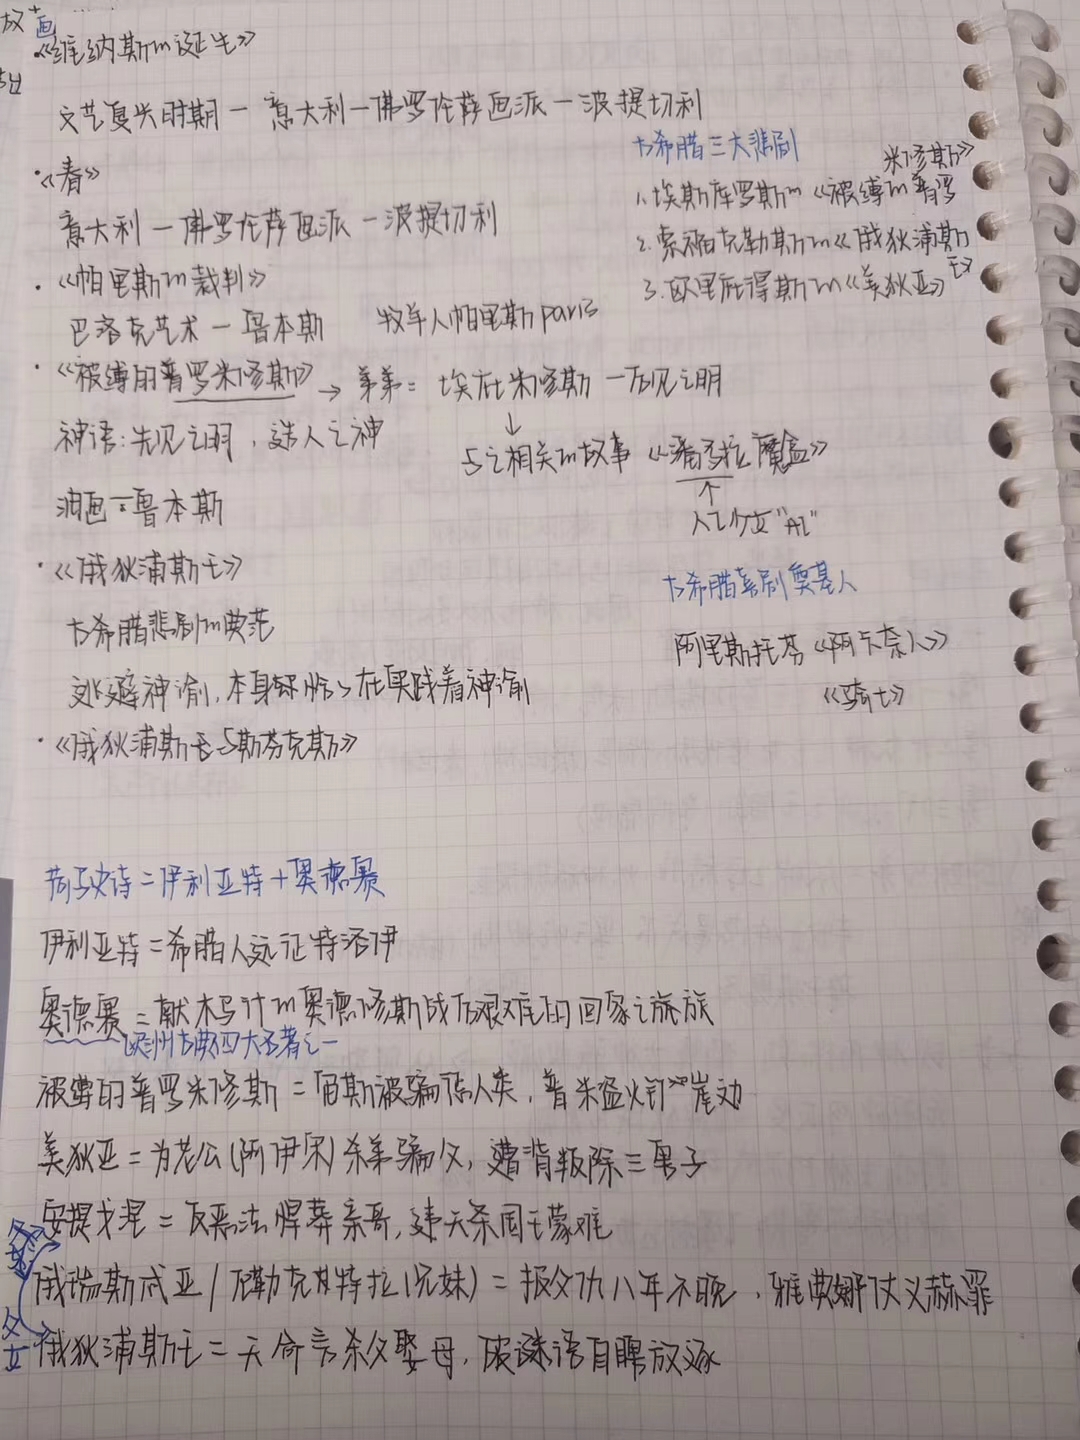 故画
《维纳斯的诞生》
文艺复兴时期一意大利一佛罗伦萨画派一波提切利
·《春》
意大利一佛罗伦萨画派一波提切利
·《帕里斯的裁判》
巴洛克艺术一鲁本斯 牧羊人帕里斯paris
古希腊三大悲剧
1.埃斯库罗斯的《被缚的普罗米修斯》
2.索福克勒斯的《俄狄浦斯王》
3.欧里庇得斯的《美狄亚》
·《被缚的普罗米修斯》→弟弟=埃庇米修斯一后见之明
神话:先见之明,造人之神
↓
与之相关的故事《潘多拉魔盒》
↑
人工少女"AI"
油画=鲁本斯
·《俄狄浦斯王》
古希腊悲剧的典范
逃避神谕,本身却恰恰在实践着神谕
·《俄狄浦斯王与斯芬克斯》
古希腊喜剧奠基人
阿里斯托芬《阿卡奈人》
《骑士》
荷马史诗=伊利亚特+奥德赛
伊利亚特=希腊人远征特洛伊
奥德赛=献木马计的奥德修斯战后艰难的回家之旅族
欧洲古典四大名著之一
被缚的普罗米修斯=宙斯被骗伤人类,普米盗火钉崖边
美狄亚=为老公(阿伊宋)杀弟骗父,遭背叛除三男子
安提戈涅=反恶法悍葬亲哥,违天条国王蒙难
俄瑞斯忒亚/厄勒克特拉(兄妹)=报父仇八年不晚,雅典娜仗义赫罪
父女
俄狄浦斯王=天命言杀父娶母,破谜语自瞎放逐